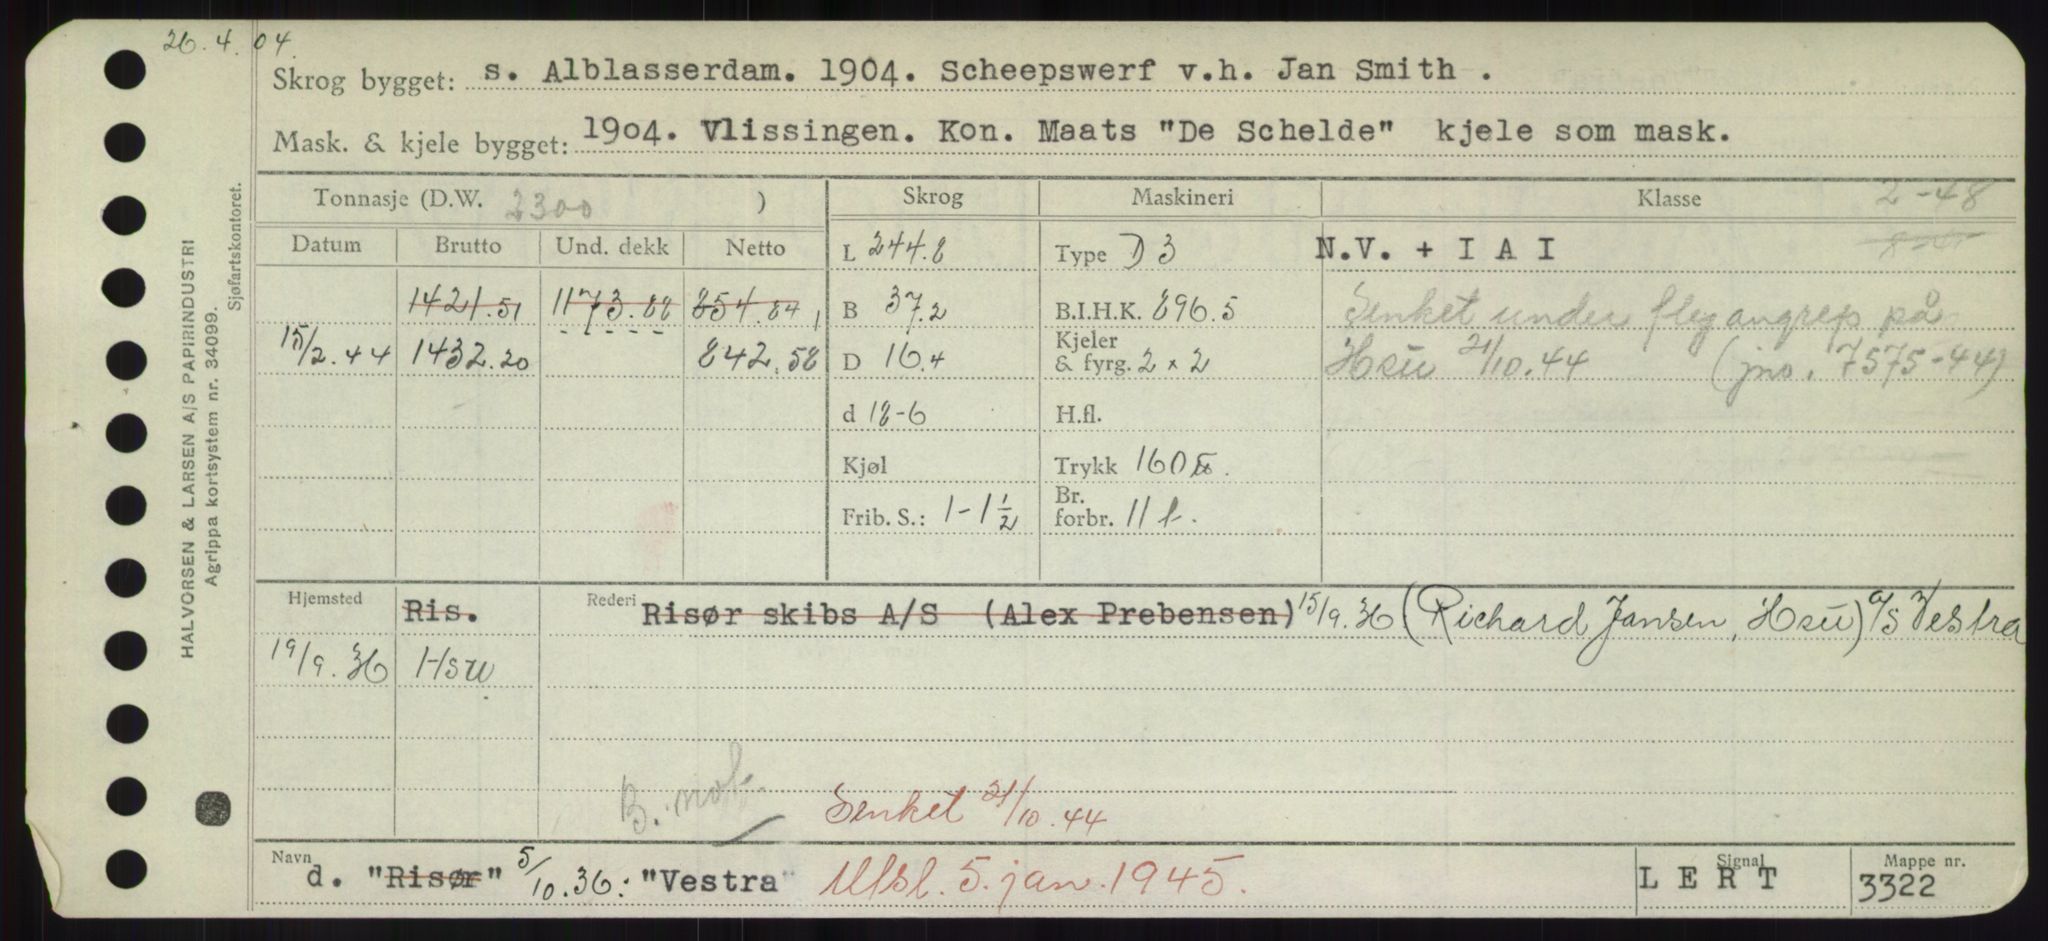 26.4.04.
Skrog bygget: s. Alblasserdam. 1904. Scheepswerf v.h. Jan Smith .
Mask. & kjele bygget: 1904. Vlissingen. Kon. Maats "De Schelde" kjele som mask.
Tonnasje (D.W. 2300 ) Skrog Maskineri Klasse 2-48
Datum Brutto Und. dekk Netto L 244.8 Type D 3 N.V. + I A I
1421.51 1173.88 854.84 B 37.2 B.I.H.K. 896.5 Senket under flyangrep på
15/2.44 1432.20 842.58 D 16.4 Kjeler & fyrg. 2 x 2 Hsu 21/10.44 (jno. 7575-44)
d 18-6 H.fl.
Kjøl Trykk 160
Frib. S.: 1-1 1/2 Br. forbr. 11 t.
Hjemsted Ris. Rederi Risør skibs A/S (Alex Prebensen) 15/9.36 (Richard Jansen, Hsu) A/S Vestra
19/9.36 Hsu
B. not.
Senket 21/10.44
Navn d. "Risør" 5/10.36: "Vestra" Utsl. 5. jan. 1945. Signal L E R T Mappe nr. 3322
HALVORSEN & LARSEN A/S PAPIRINDUSTRI
Agrippa kortsystem nr. 34099.
Sjøfartskontoret.